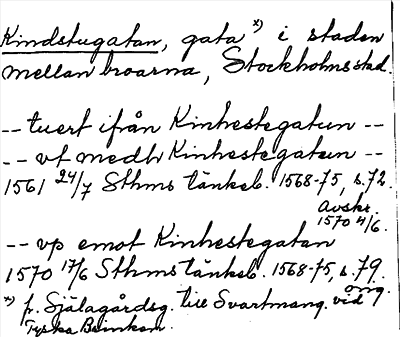 Kindstugatan, gata x) i staden
mellan broarna, Stockholms stad.
-- tuert ifrån Kinhestegatun --
-- vt medh Kinhestegaten --
1561 24/7 Sthms tänkeb. 1568-75, s. 72.
Avskr.
1570 11/6.
-- vp emot Kinhestegatan
1570 17/6 Sthms tänkeb. 1568-75, s. 79.
orig.
x) fr. Själagårdsg. till Svartmang. vid
Tyska Brinken.